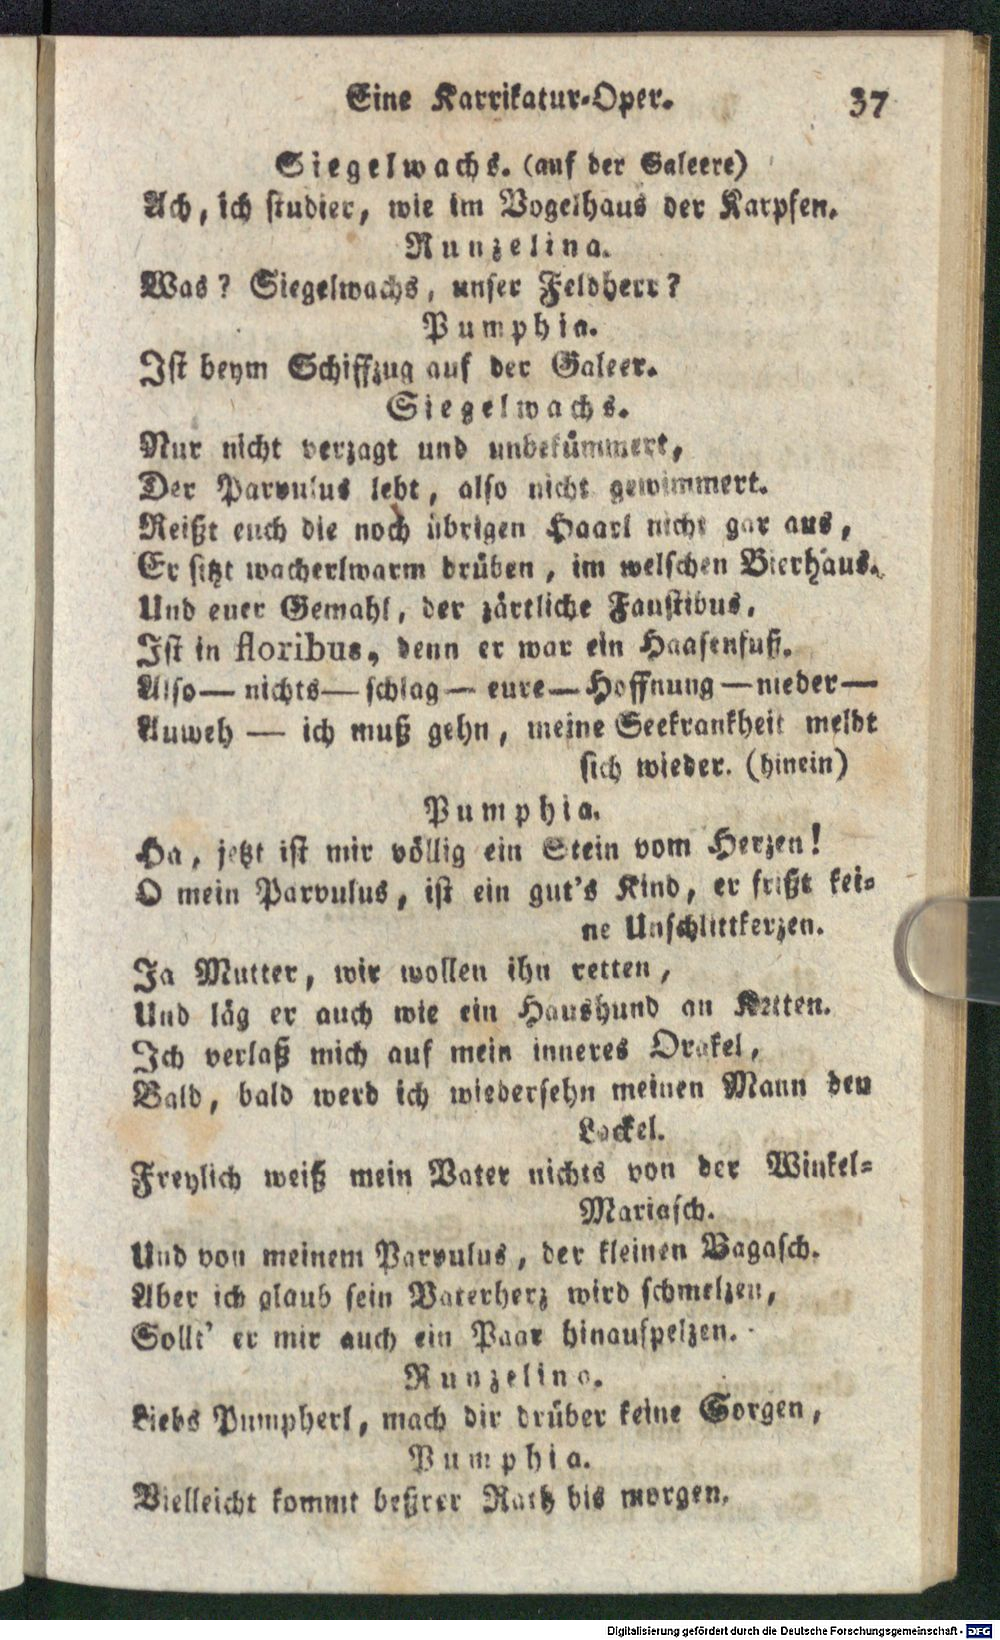 Eine Karrikatur-Oper. 37
Siegelwachs. (auf der Galeere)
Ach, ich studier, wie im Vogelhaus der Karpfen.
Runzelina.
Was? Siegelwachs, unser Feldherr?
Pumphia.
Ist beym Schiffzug auf der Galeer.
Siegelwachs.
Nur nicht verzagt und unbekümmert,
Der Parvulus lebt, also nicht gewimmert.
Reißt euch die noch übrigen Haarl nicht gar aus,
Er sitzt wacherlwarm drüben, im welschen Bierhaus.
Und euer Gemahl, der zärtliche Faustibus,
Ist in floribus, denn er war ein Haasenfuß.
Also — nichts — schlag — eure — Hoffnung — nieder —
Auweh — ich muß gehn, meine Seekrankheit meldt
sich wieder. (hinein)
Pumphia.
Ha, jetzt ist mir völlig ein Stein vom Herzen!
O mein Parvulus, ist ein gut's Kind, er frißt kei-
ne Unschlittkerzen.
Ja Mutter, wir wollen ihn retten,
Und läg er auch wie ein Haushund an Ketten.
Ich verlaß mich auf mein inneres Orakel,
Bald, bald werd ich wiedersehn meinen Mann den
Lackel.
Freylich weiß mein Vater nichts von der Winkel-
Mariasch.
Und von meinem Parvulus, der kleinen Bagasch.
Aber ich glaub sein Vaterherz wird schmelzen,
Sollt' er mir auch ein Paar hinaufpelzen.
Runzelina.
Liebs Pumpherl, mach dir drüber keine Sorgen,
Pumphia.
Vielleicht kommt beßrer Rath bis morgen.
Digitalisierung gefördert durch die Deutsche Forschungsgemeinschaft - DFG